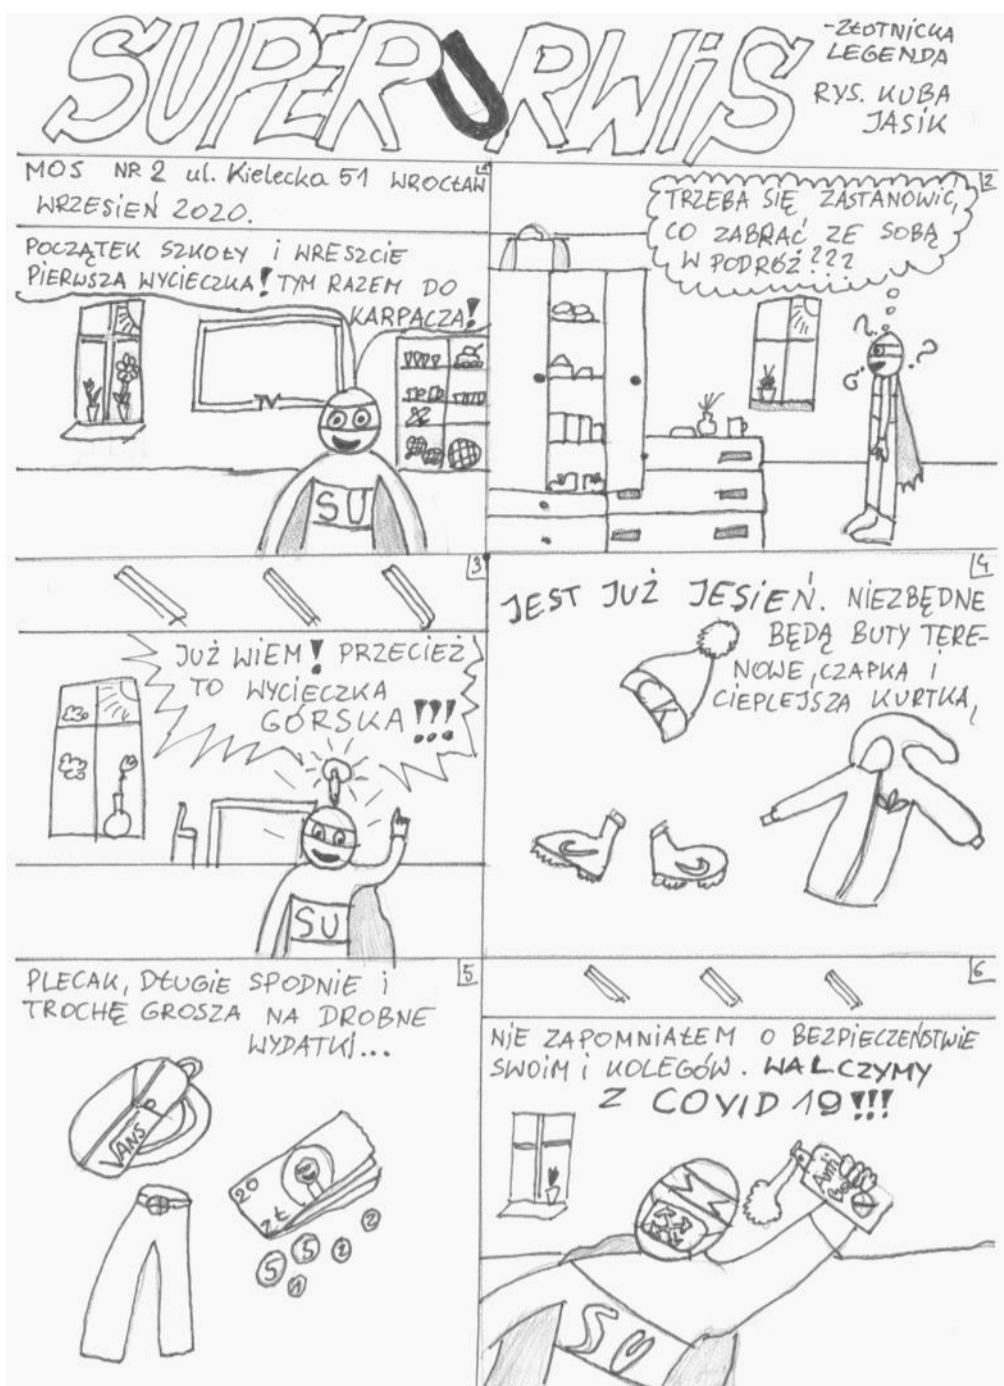 SUPERURWIS
-ZŁOTNICKA
LEGENDA
RYS. KUBA
JASIK
1
MOS NR 2 ul. Kielecka 51 WROCŁAW
WRZESIEŃ 2020.
POCZĄTEK SZKOŁY I WRESZCIE
PIERWSZA WYCIECZKA! TYM RAZEM DO
KARPACZA!
TV
SU
2
TRZEBA SIĘ ZASTANOWIĆ,
CO ZABRAĆ ZE SOBĄ
W PODRÓŻ???
? ?
3
JUŻ WIEM! PRZECIEŻ
TO WYCIECZKA
GÓRSKA!!!
SU
4
JEST JUŻ JESIEŃ. NIEZBĘDNE
BĘDĄ BUTY TERE-
NOWE, CZAPKA I
CIEPLEJSZA KURTKA,
5
PLECAK, DŁUGIE SPODNIE I
TROCHĘ GROSZA NA DROBNE
WYDATKI...
VANS
20
zł
2
5 5 2
1
6
NIE ZAPOMNIAŁEM O BEZPIECZEŃSTWIE
SWOIM I KOLEGÓW. WALCZYMY
Z COVID 19!!!
Anti
SU